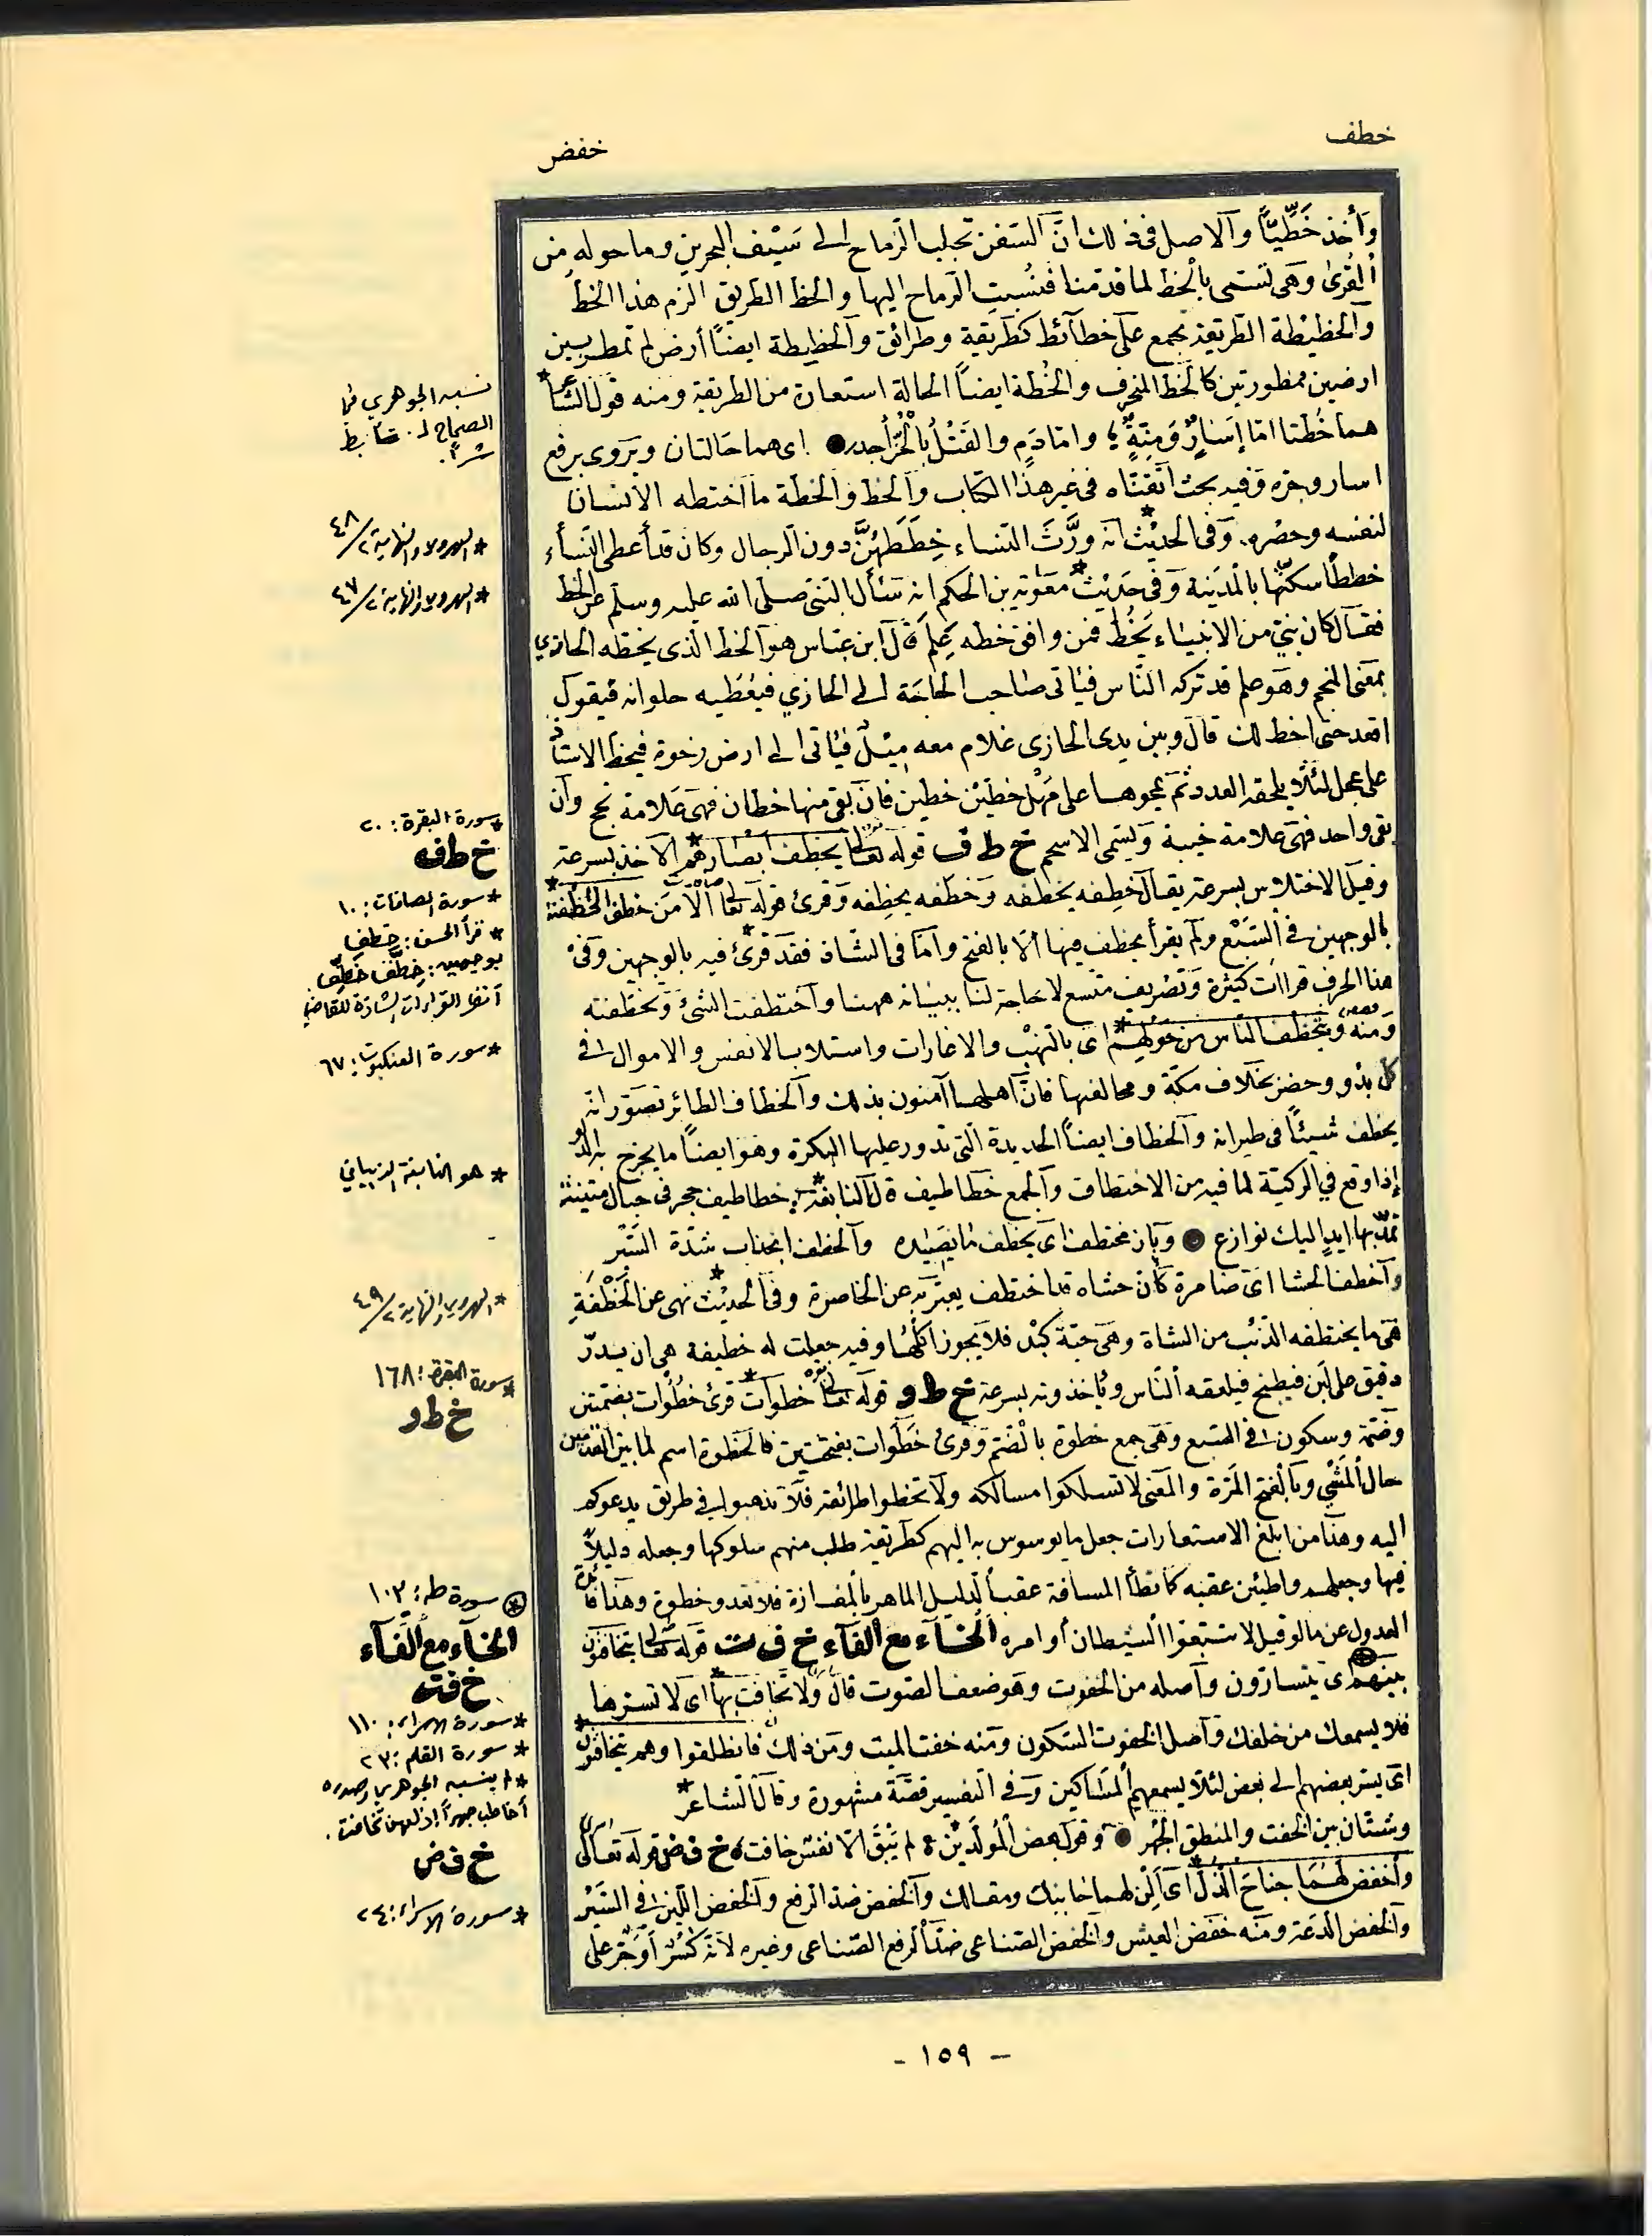 خطف
خفض
وأخذ خَطِّيًّا والاصل في ذلك انّ السفن تجلب الرماح الى سَيْف البحرين وما حوله من
القُرىٰ وهي تسمى بالخط لما قدّمنا فنُسبت الرماح اليها والخط الطريق الزم هذا الخط
والخطيطة الطريقة تجمع على خطائط كطريقة وطرائق والخطيطة ايضاً أرض لم تمطر بين
ارضين ممطورتين كالخط المنحرف والخُطة ايضاً الحالة استعارة من الطريقة ومنه قول الشاعر*
هما خُطتا امّا إسَارٌ وَمِنّةٌ ؛ وامّا دَمٍ والقَتْلُ بالْحُرِّ أجدر ● اى هما حَالتان ويَروى برفع
اسار وجره وفيه بحث اتقنّاه فى غير هذا الكتاب والخط والخطة ما اختطه الانسان
لنفسه وحصره. وفى الحديث* انه ورَّثَ النساء خِطَطَهُنَّ دون الرجال وكان قد أعطى النساء
خططاً سكنّها بالمدينة وفى حديث* معٰوية بن الحكم انه سَأل النبىّ صلى الله عليه وسلم عن الخط
فقال كان نبيّ من الانبياء يَخُطّ فمن وافق خطه عَلِمَ قال ابن عباس هو الخط الذى يخطه الحازي
بمعنى المنجم وهو علم قد تركه الناس فيأتى صَاحب الحاجَة الى الحازي فيُعْطيه حلوانه فيقول
اقعد حتى اخط لك قال وبين يدى الحازى غلام معه مِيْلٌ فيأتى الى ارض رخوة فيخط الاستاذ
على عجل لئلّا يلحقه العدد ثم يمحوها على مَهْل خطَيْن خطين فان بقى منها خطان فهى عَلامة نجح وان
بقى واحد فهى علامة خيبة ويسَمى الاسحم خ ط ف قوله تعالى يخطف أبْصَارهم* الاخذ بسرعة
وقيل الاختلاس بسرعة يقال خطِفه يخطَفه وخطَفه يخطِفه وقرئ قوله تعالى الّا من خطف الخَطْفة*
بالوجهين في السّبْع ولم يقرأ يخطف فيها الّا بالفتح وامّا فى الشاذ فقد قرئ* فيه بالوجهين وفي
هذا الحرف قراات كثيرة وتصْريف متسع لا حاجة لنا ببيانه ههنا واختطفت الشئ وتخطفته
ومنه ويتخطف الناس من حَوْلهِم* اى بالنهْب والاغارات واستلاب الانفس والاموال فى
كل بدْو وحضر بخلاف مكّة ومحالفيها فانّ اهلها آمنون بذلك والخطاف الطائر تصوّر انه
يخطف شيئاً فى طيرانه والخطاف ايضاً الحديدة التى تدور عليها البكرة وهو ايضاً ما يخرج به الدلو
إذا وقع في الركيّة لما فيه من الاختطاف والجمع خطاطيف قال النابغة*؛ خطاطيف حجر فى حبال متينة
تمدّ بها ايدٍ اليك نوازع ● وباز مختطف اى يخطف مَا يَصيده والخطف انجذاب شدّة السّيْر
واخطف الحشا اى ضامرة كأن حشاه قد اختطف يعبّر به عن الخاصرة وفى الحديث* نهى عن الخَطْفَةِ
هى ما يختطفه الذئب من الشاة وهى حيّة كيْد فلا يجوز اكلُها وفيه جعلت له خطيفة هى ان يذرّ
دقيق على لبن فيطبخ فيلعقه الناس ويأخذونه بسرعة خ ط و قوله تعالى خطوات* قرئ خُطُوات بضمتين
وضمّة وسكون فى السّبع وهى جمع خطوة بالضم وقرئ خَطَوات بفتحتين فالخطوة اسم لما بين القدمين
حال المَشْي وبالفتح المَرّة والمعنى لا تسلكوا مسالكه ولا تخطوا طرائقه فلا تذهبوا في طريق يدعوكم
اليه وهذا من ابلغ الاستعارات جعل ما يوسوس به اليهم كطريقة طلب منهم سلوكها وجعله دليلاً
فيها وجعلهم واطئين عقبه كما تطأ المسافة عقبا لدليل الماهر بالمفازة فلا تعدو خطوة وهذا فائدة
العدول عن ما لو قيل لا تتبعوا الشيطان أو امره الخاء مع الفاء خ ف ت قوله تعالى يتخافتون
بينهم اى يتسارّون واصله من الخفوت وهو ضعف الصوت قال وَلا تخافت بها* اى لا تسرّها
فلا يسمعك من خلفك واصل الخفوت السّكون ومنه خفت الميت ومن ذلك فانطلقوا وهم يتخافتون*
اى يسرّ بعضهم الى بعض لئلا يسمعهم المسَاكين وفى التفسير قصّة مشهورة وقال الشاعر*
وشتّان بين الخفت والمنطق الجهْر ● وقول بعض المُولَّديْن ؛ لم يَبْقَ الّا نفس خافت ؛ خ ف ض قوله تعالى
واخفض لهُمَا جناحَ الذّل* اى اَلِنْ لهما جَانبك ومقالك والخفض ضدّ الرفع والخفض اللّين فى السّيْر
والخفض الدعة ومنه خفَض العيش والخفض الصّناعى ضدّ الرفع الصّناعى وغيره لانّه كُسِر أو جُرّ على
نسبه الجوهري في
الصحاح لـ: تأبط
شراً.
* الهروي والنهاية ٢/٤٨
* الهروي والنهاية ٢/٤٧
* سورة البقرة: ٢٠
خ ط ف
* سورة الصافات: ١٠
* قرأ الحسن: خِطِفَ
بوجهين: خِطَّف خَطِّف
انظر القراءات الشاذة للقاضي
* سورة العنكبوت: ٦٧
* هو النابغة الذبياني
* الهروي والنهاية ٢/٤٩
* سورة البقرة: ١٦٨
خ ط و
* سورة طه: ١٠٣
الخآء مع الفآء
خ ف ت
* سورة الإسراء: ١١٠
* سورة القلم: ٢٣
* لم ينسبه الجوهري وصدره
أخاطب جهراً إذ لهن تخافت.
خ ف ض
* سورة الاسراء: ٢٤
- ١٥٩ -